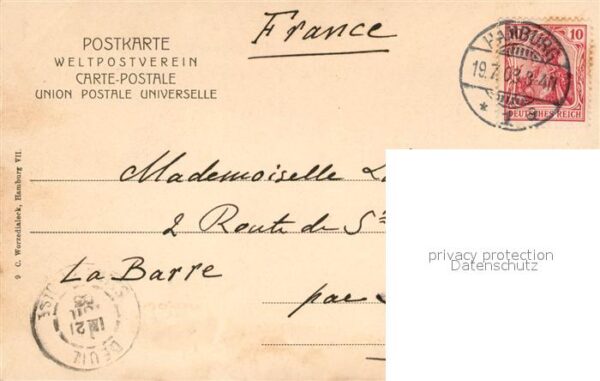 POSTKARTE
WELTPOSTVEREIN
CARTE-POSTALE
UNION POSTALE UNIVERSELLE
France
HAMBURG
19.7.03.3-4N
* 1
10
DEUTSCHES REICH
9 C. Worzedialeck, Hamburg VII.
Mademoiselle
2 Route de Ste
La Barre
par
privacy protection
Datenschutz
21
DEUIL